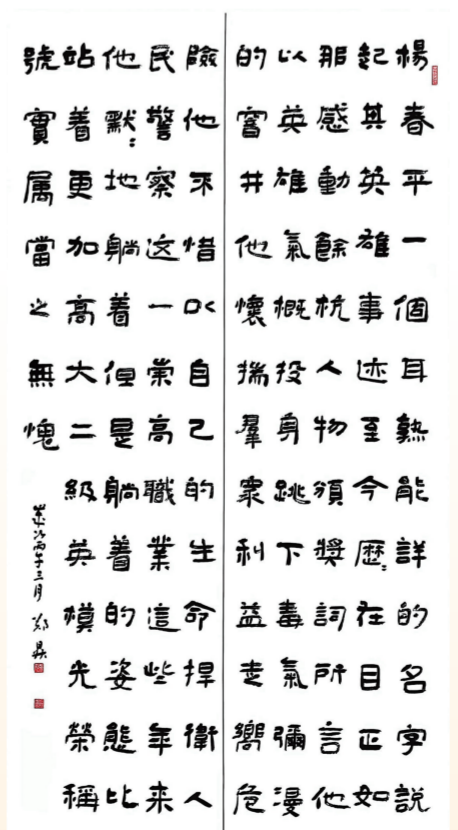 楊春平一個耳熟能詳的名字說
起其英雄事迹至今歷〻在目正如
那感動餘杭人物頒獎詞所言他
以英雄氣概投身跳下毒氣彌漫
的窨井他懷揣羣衆利益走嚮危
險他不惜以自己的生命捍衛人
民警察这一崇高職業這些年來
他默〻地躺着但是躺着的姿態比
站着更加高大二級英模光榮稱
號實属當之無愧
歲次丙午三月 鄭